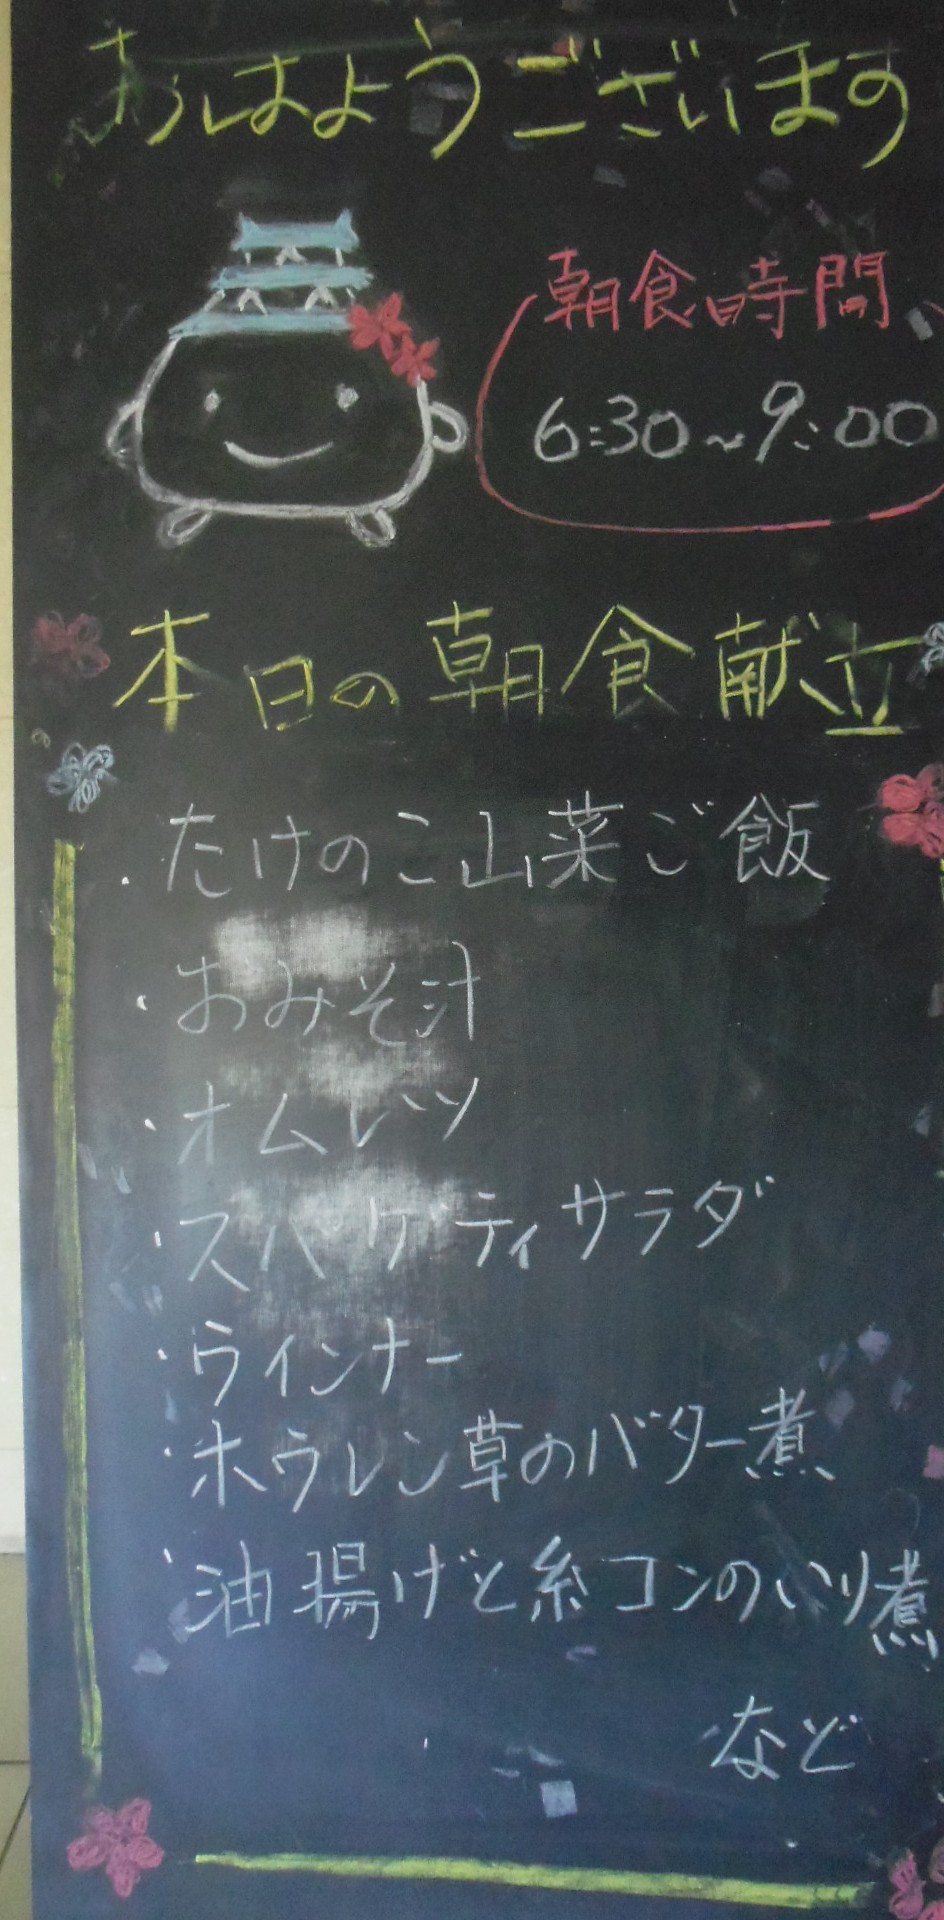 おはようございます
朝食時間
6:30~9:00
本日の朝食献立
・たけのこ山菜ご飯
・おみそ汁
・オムレツ
・スパゲティサラダ
・ウインナー
・ホウレン草のバター煮
・油揚げと糸コンのいり煮
など